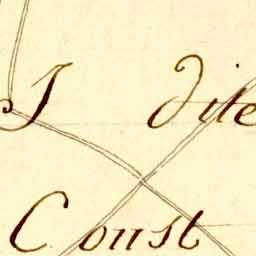 I dite
Const